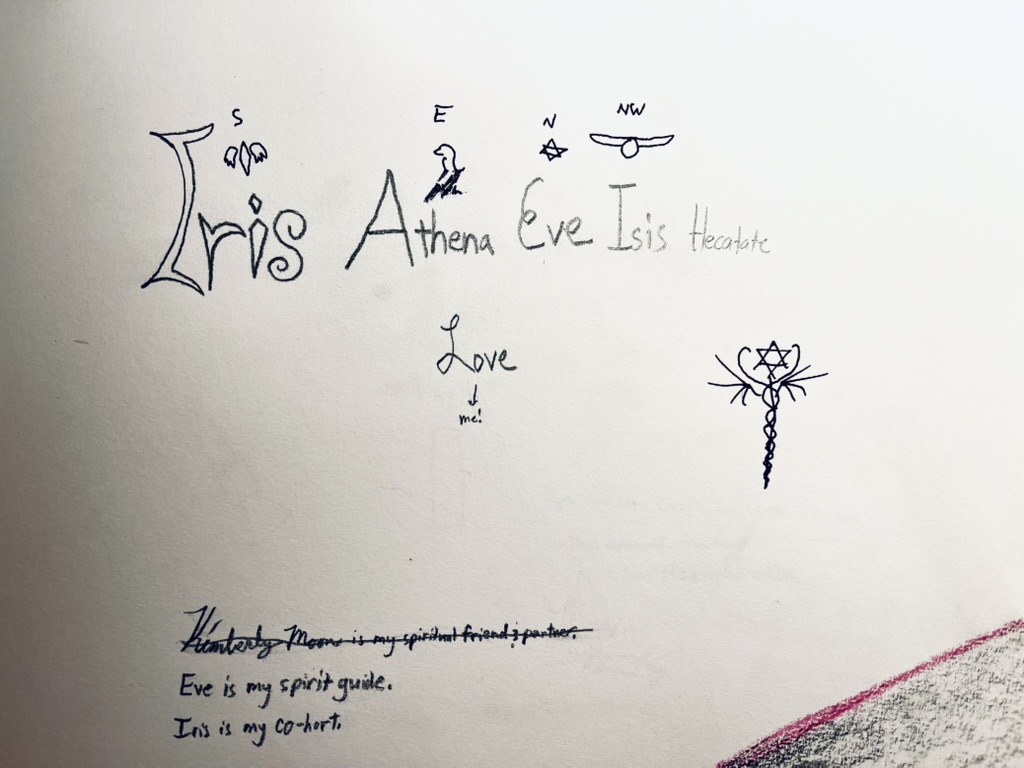 S E N NW
Iris Athena Eve Isis Hecatate
Love
me!
Kimberly Moon is my spiritual friend & partner.
Eve is my spirit guide.
Iris is my co-hort.